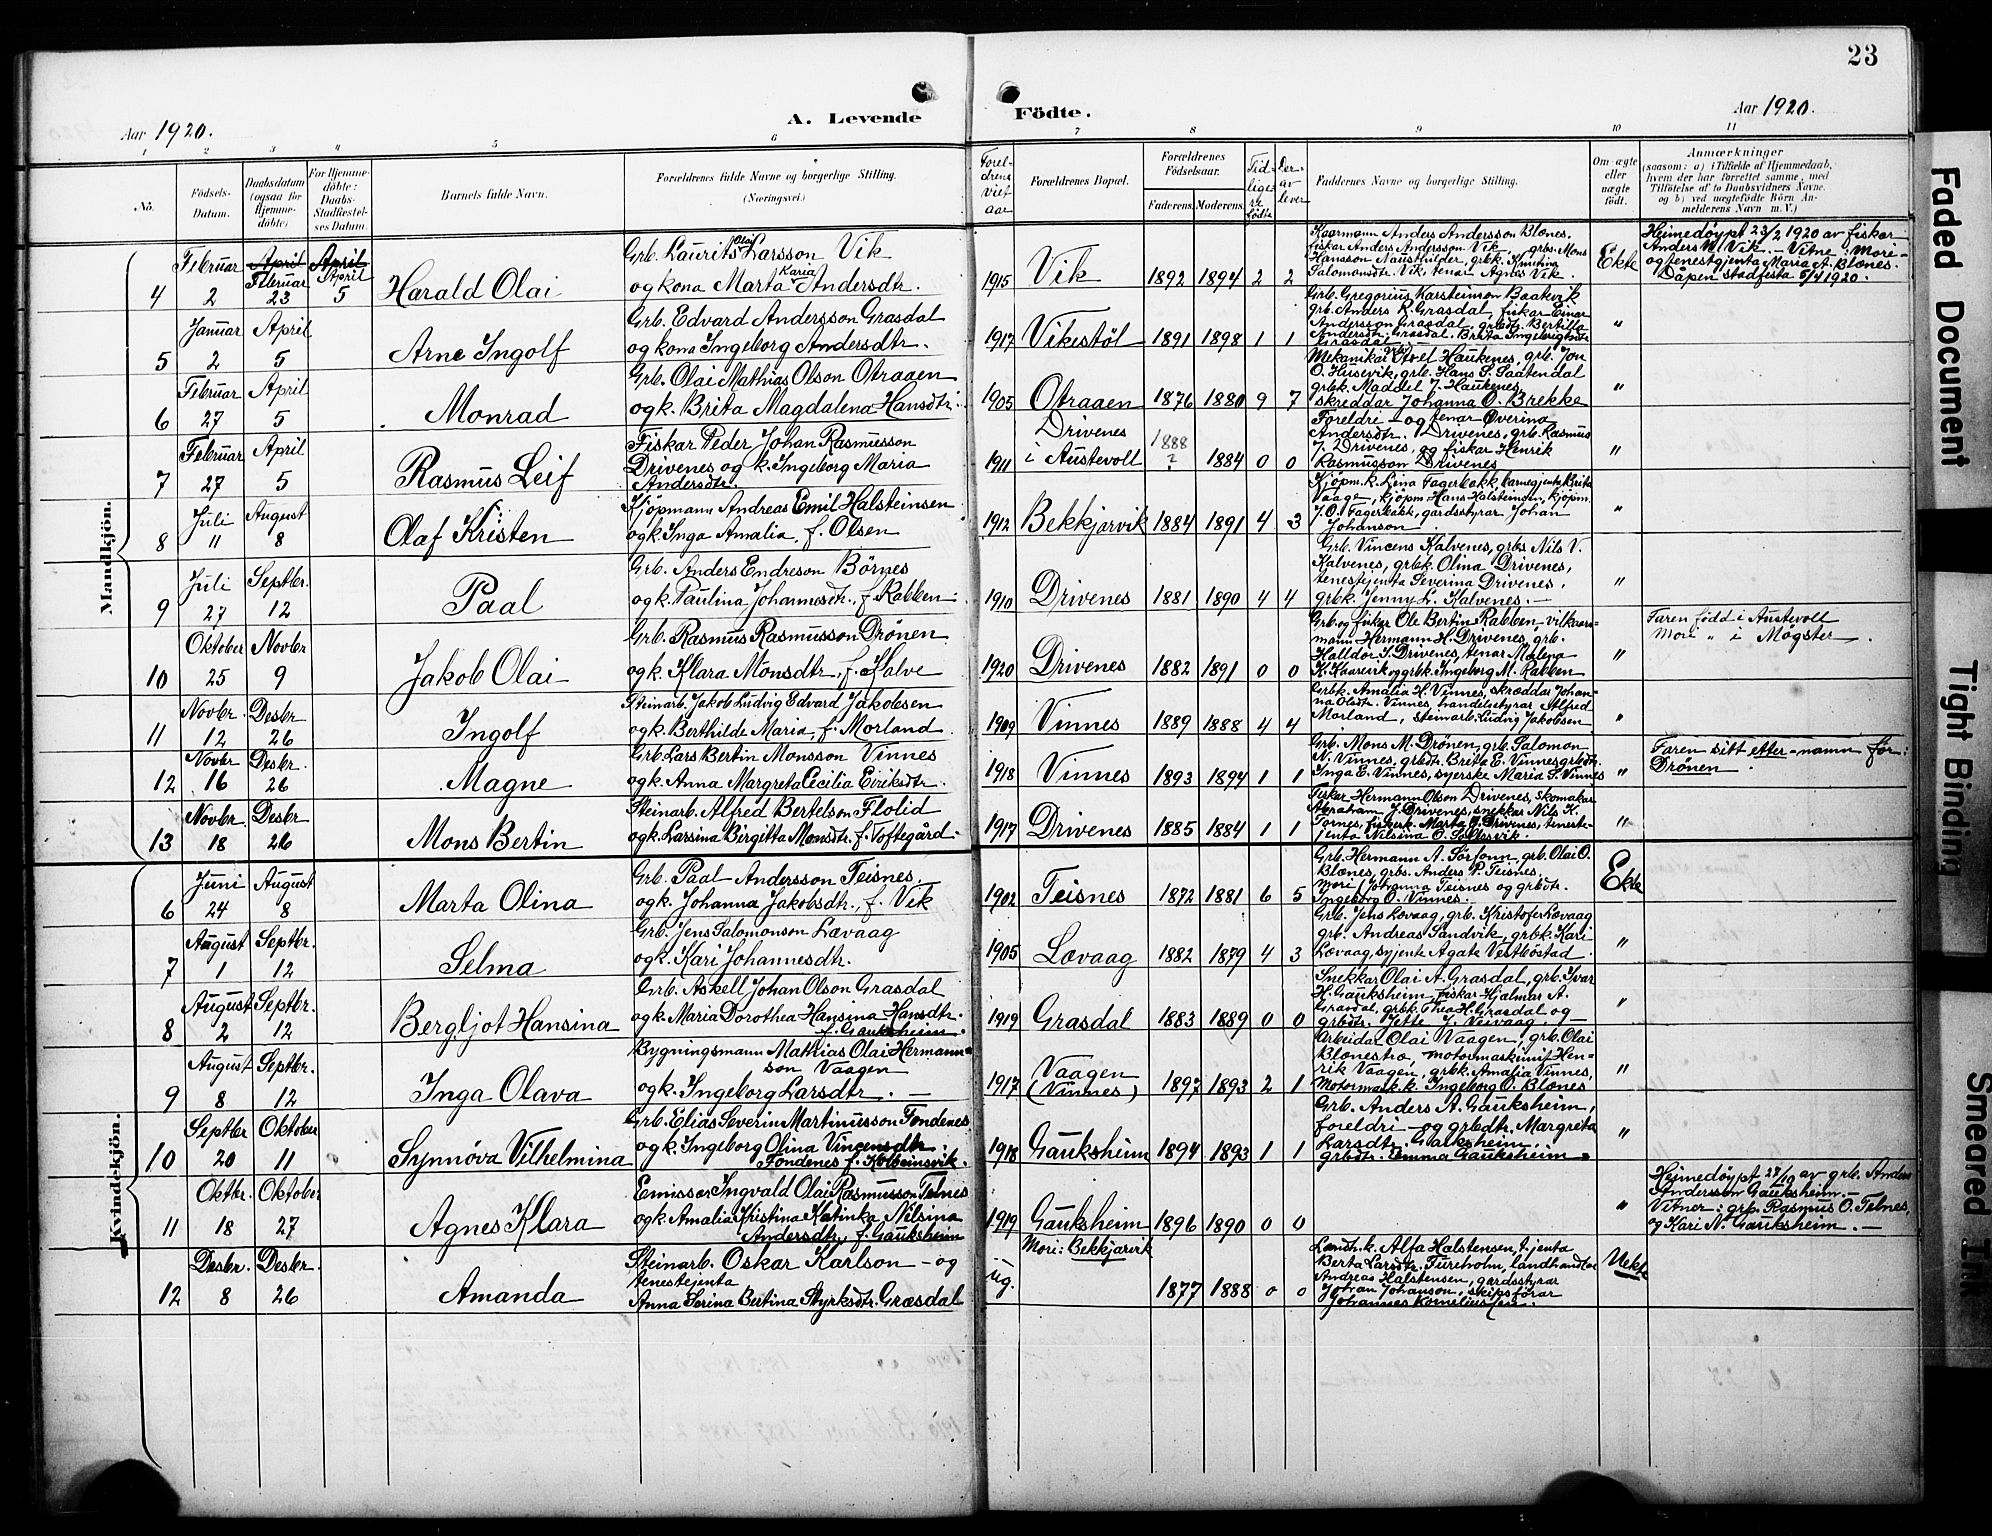 23
Aar 1920.
A. Levende
Födte.
Aar 1920.
1 2 3 4 5 6 7 8 9 10 11
No.
Födsels-
Datum.
Daabsdatum
(ogsaa for
Hjemme-
döbte)
For Hjemme-
döbte:
Daabs-
Stadfæstel-
ses Datum.
Barnets fulde Navn.
Forældrenes fulde Navne og borgerlige Stilling.
(Næringsvei.)
Foreldrens
Viet
aar
Forældrenes Bopæl.
Forældrenes
Födselsaar.
Faderens. Moderens.
Tid-
ligere
fødte
Der-
av
lever
Faddernes Navne og borgerlige Stilling.
Om ægte
eller
uægte
födt.
Anmærkninger
(saasom: a) i Tilfælde af Hjemmedaab,
hvem der har forrettet samme, med
Tilföielse af to Daabsvidners Navne,
og b) ved uægtefödte Börn An-
melderens Navn m. V.)
Mandkjön.
4
Februar
2
April
Februar
23
April
April
5
Harald Olai
Grb. Laurits Olai Larsson Vik
og kona Marta Karia Andersdtr.
1915
Vik
1892 1894 2 2
Kaarmann Anders Andersson Blænes,
fiskar Anders Andersson Vik, grbs. Mons
Hansson Nausthilder, grbk. Kristina
Salomonsdtr. Vik, tenar Agnes Vik.
Ekte
Heimedøypt 23/2 1920 av fiskar
Anders Vik. - Vitne: Mori
og tenestgjenta Maria A. Blænes.
Dåpen stadfesta 5/4 1920.
5
Januar
2
April
5
Arne Ingolf
Grb. Edvard Andersson Grasdal
og kona Ingeborg Andersdtr.
1917
Vikestöl
1891 1898 1 1
Grb. Gregorius Karsteinson Baatevik
grb. Anders R. Grasdal, fiskar Einar
Andersson Grasdal, grbdtr. Bertilla
Andersdtr. Grasdal. Brita Ingebrigtsdtr
Grasdal
"
6
Februar
27
April
5
Monrad
Grb. Olai Mathias Olson Otraaen
og k. Brita Magdalena Hansdtr.
1905
Otraaen
1876 1880 9 7
Mekanikar Axel Haukenes, grb. Jon
O. Husevik, grb. Hans S. Saatendal
grbk. Maddel J. Haukenes,
skreddar Johanna O. Brekke
"
7
Februar
27
April
5
Rasmus Leif
Fiskar Peder Johan Rasmusson
Drivenes og k. Ingeborg Maria
Andersdtr.
1911
Drivenes
i Austevoll
1888
?
1884 0 0
Foreldri - og tenar Øverina
Andersdtr. Drivenes, grb. Rasmus
J. Drivenes, og fiskar Henrik
Rasmusson Drivenes
"
8
Juli
11
August
8
Olaf Kristen
Kjöpmann Andreas Emil Halsteinsen
og k. Inga Amalia, f. Olsen
1912
Bekkjarvik
1884 1891 4 3
Kjöpm. k. Lina Fagerbakk, barnegjenta Brita
Vaage, kjöpm Hans Halsteinsen, kjöpm.
J. O. Fagerbakk, gardsstyrar Johan
Johanson
"
9
Juli
27
Septbr.
12
Paal
Grb. Anders Endreson Börnes
og k. Paulina Johannesdtr., f. Rabben
1910
Drivenes
1881 1890 4 4
Grb. Vincens Kalvenes, grbs Nils V.
Kalvenes, grbk. Olina Drivenes,
tenestejenta Severina Drivenes,
grbk. Jenny L. Kalvenes.
"
10
Oktober
25
Novbr
9
Jakob Olai
Grb. Rasmus Rasmusson Drönen
og k. Klara Monsdtr., f. Kalve
1920
Drivenes
1882 1891 0 0
Grb. og fiskar Ole Bertin Rabben, vilkaars-
mann Hermann H. Drivenes, grb.
Halldor S. Drivenes, tenar Malena
K. Kaarevik og grbk. Ingeborg M. Rabben
"
Faren född i Austevoll
Mori " i Mögster
11
Novbr.
12
Desbr
26
Ingolf
Steinarb. Jakob Ludvig Edvard Jakobsen
og k. Berthilde Maria, f. Morland
1909
Vinnes
1889 1888 4 4
Grbk. Amalia H. Vinnes, skræddar Johan-
na Olsdtr. Vinnes, handelsstyrar Alfred
Morland, steinarb. Ludvig Jakobsen
"
12
Novbr
16
Desbr.
26
Magne
Grb. Lars Bertin Monsson Vinnes
og k. Anna Margreta Cecilia Eiriksdtr.
1918
Vinnes
1893 1894 1 1
Grb. Mons M. Drönen, grb. Salomon
N. Vinnes, grbdtr. Brita E. Vinnes grbdtr.
Inga E. Vinnes, syerske Maria S. Vinnes
"
Faren sitt etter-namn før:
Drönen
13
Novbr.
18
Desbr
26
Mons Bertin
Steinarb. Alfred Bertelson Flolid
og k. Larsina Birgitta Monsdtr. f. Toftegård.
1917
Drivenes
1885 1884 1 1
Fiskar Hermann Olson Drivenes, skomakar
Abraham J. Drivenes, snekkar Nils K.
Fornes, fiskerk. Marta J. Drivenes, tenest-
jenta Nilsina O.
"
Kvindekjön.
6
Juni
24
August
8
Marta Olina
Grb. Paal Andersson Teisnes
og k. Johanna Jakobsdtr., f. Vik
1902
Teisnes
1872 1881 6 5
Grb. Hermann A. Sörfonn, grb. Olai O.
Blænes, grbs. Anders P. Teisnes,
Mori Johanna Teisnes og grbdtr.
Ingeborg O. Vinnes.
Ekte
7
August
1
Septbr.
12
Selma
Grb. Jens Salomonson Lævaag
og k. Kari Johannesdtr.
1905
Lævaag
1882 1879 4 3
Grb. Jens Lovaag, grb. Kristofer Lævaag
grb. Andreas Sandvik, grbk. Kari
Lævaag, syjente Agate Vestböstad
"
8
August
2
Septbr.
12
Bergljot Hansina
Grb. Askell Johan Olson Grasdal
og k. Maria Dorothea Hansina Hansdtr.
f. Gauksheim.
1919
Grasdal
1883 1889 0 0
Snekkar Olai A. Grasdal, grb. Ivar
H. Gauksheim, fiskar Hjalmar A.
Grasdal, grbk. Thea H. Grasdal og
grbdtr. Jette J. Veivaag.
"
9
August
8
Septbr.
12
Inga Olava
Bygningsmann Mathias Olai Hermann-
son Vaagen
og k. Ingeborg Larsdtr.
1917
Vaagen
(Vinnes)
1897 1893 2 1
Arbeidar Olai Vaagen, grb. Olai
Blænestrø, motormaskinist Hen-
rik Vaagen, grbk. Amalia Vinnes,
Motormask. k. Ingeborg O. Blænes
"
10
Septbr
20
Oktober
11
Synnöva Vilhelmina
Grb. Elias Severin Martinusson Fondenes
og k. Ingeborg Olina Vincensdtr.
Fondenes f. Kolbeinsvik.
1918
Gauksheim
1894 1893 1 1
Grb. Anders A. Gauksheim,
foreldri - og grbdtr. Margreta
Larsdtr. Gauksheim.
grbdtr. Emma Gauksheim
"
11
Oktbr.
18
Oktober
27
Agnes Klara
Emissær Ingvald Olai Rasmusson Telnes
og k. Amalia Kristina Katinka Nilsina
Andersdtr., f. Gauksheim
1919
Gauksheim
1896 1890 0 0
"
Heimedøypt 27/10 av grb. Anders
Andersson Gauksheim.
Vitner: grb. Rasmus O. Telnes,
og Kari N. Gauksheim.
12
Desbr.
8
Desbr.
26
Amanda
Steinarb. Oskar Karlson - og
tenestejenta
Anna Serina Bertina Styrksdtr. Græsdal
ug.
Mori: Bekkjarvik
1877 1888 0 0
Landh. k. Alfa Halstensen, t. jenta
Berta Larsdtr. Tureholm, landhandlar
Andreas Halstensen, gardsstyrar
Johan Johanson, skipsförar
Johannes Korneliussen.
Uekte
Faded Document
Tight Binding
Smeared Ink